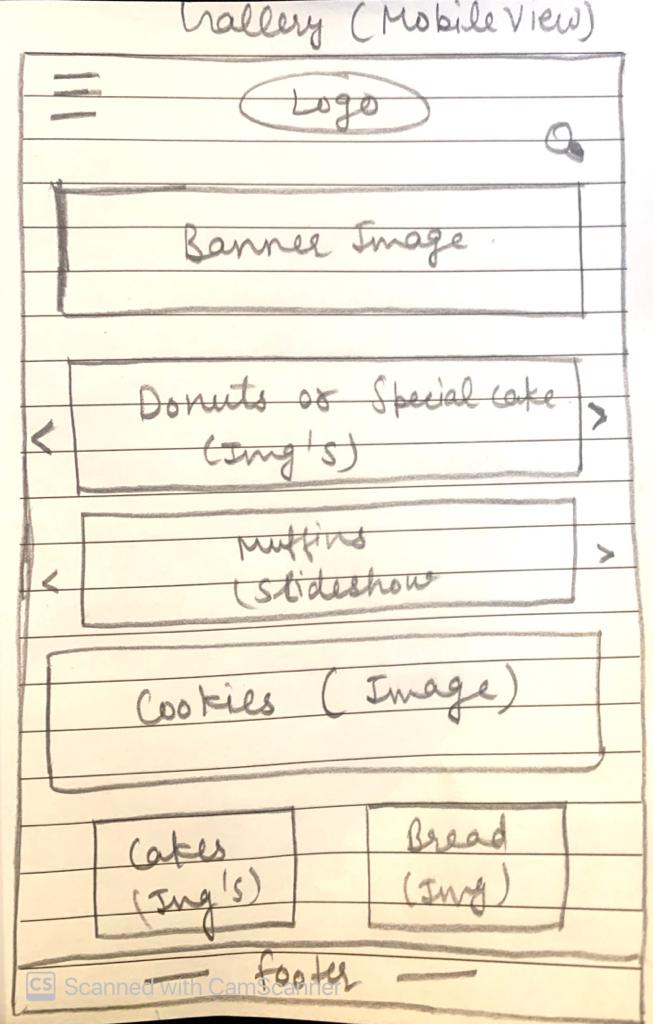 Gallery (Mobile View)
Logo
Banner Image
Donuts or Special cake
(Img's)
<
>
Muffins
(Slideshow
<
>
Cookies (Image)
Cakes
(Img's)
Bread
(Img)
footer
CS Scanned with CamScanner